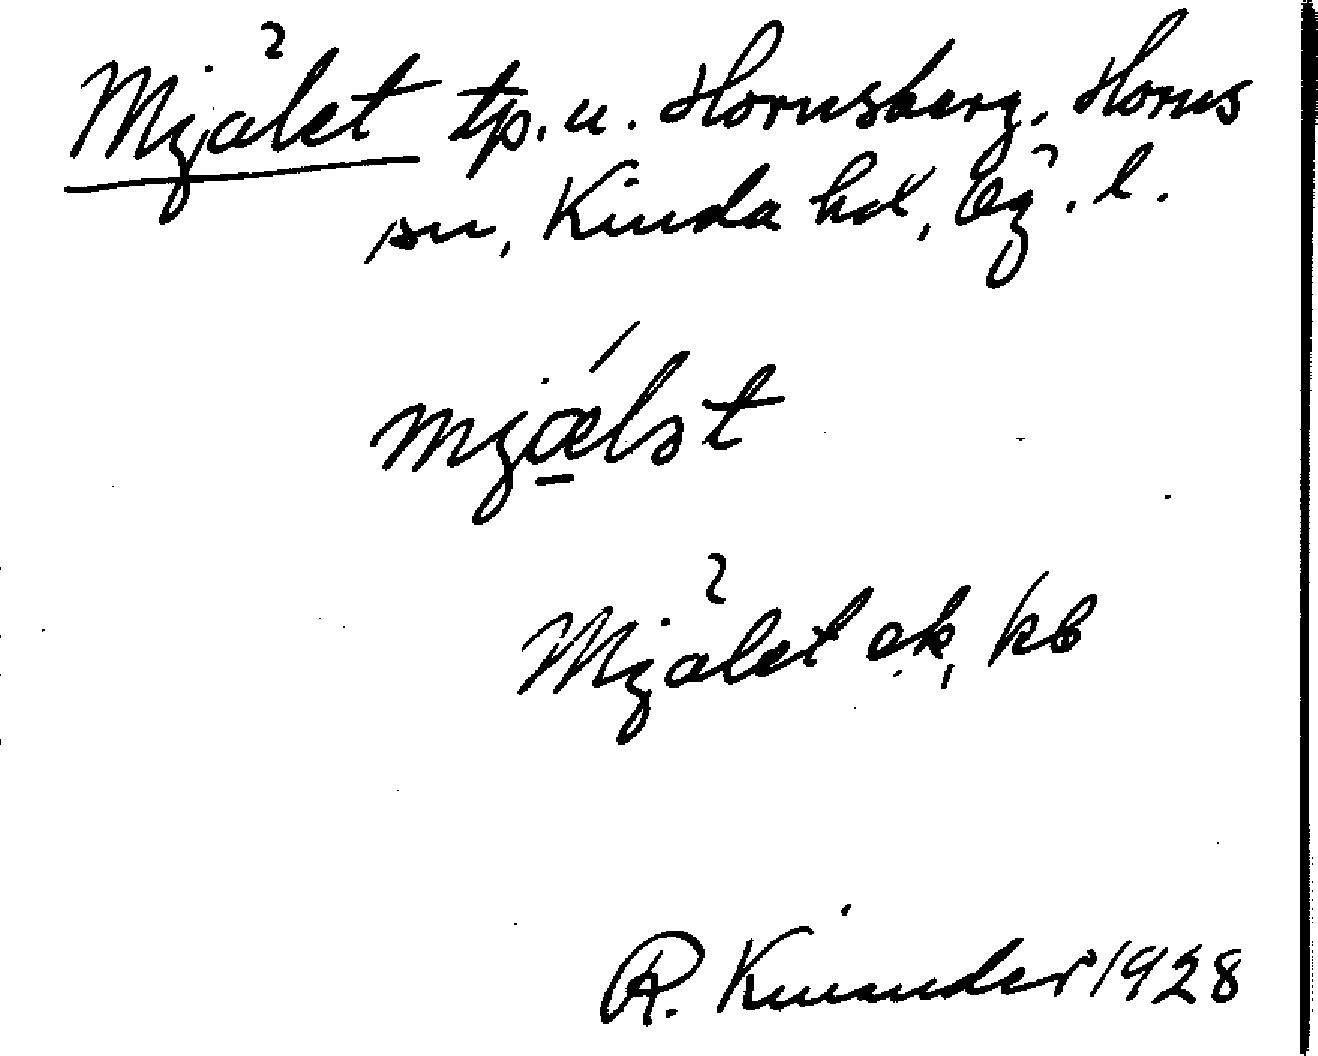 Mjälet tp. u. Hornsberg, Horns
sn, Kinda hd, Ög. l.
mjǽlət
Mjälet ek, kb
R. Kinander 1928